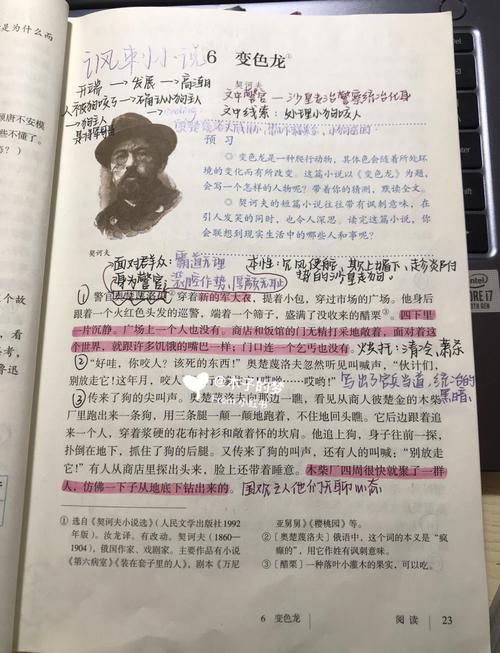 是为什么而
讽刺小小说
6 变色龙①
契诃夫
开端→发展→高潮
文中警官→沙皇
文中线索:处理小狗咬人
预习
◇ 变色龙是一种爬行动物,具体色会随着所处环
境的变化而有所改变。这篇小说以《变色龙》为题,
会写一个怎样的人物呢?带着你的猜测,默读全文。
◇ 契诃夫的短篇小说往往带有讽刺意味,在
引人发笑的同时,也令人深思。读完这篇小说,你
会联想到现实生活中的哪些人和事呢?
契诃夫
面对群众:霸道无理
本性:见风使舵,欺上媚下,趋炎附
身为警官:装腔作势,厚颜无耻
势的沙皇走狗
① 警官奥楚蔑洛夫②穿着新的军大衣,提着小包,穿过市场的广场。他身后
跟着一个火红色头发的巡警,端着一个筛子,盛满了没收来的醋栗③。四下里
一片沉静。广场上一个人也没有。商店和饭馆的门无精打采地敞着,面对着这
个世界,就跟许多饥饿的嘴巴一样;门口连一个乞丐也没有。
烘托:清冷,萧杀
② “好哇,你咬人?该死的东西!”奥楚蔑洛夫忽然听见叫喊声,“伙计们,
别放走它!这年月,咬人
哎哟……哎哟!”
写出了家犬当道,统治的
黑暗
木子的梦
③ 传来了狗的尖叫声。奥楚蔑洛夫往那边一瞧,看见从商人彼楚金的木柴
厂里跑出来一条狗,用三条腿一颠一颠地跑着,不住地回头瞧。它后边跟着追
来一个人,穿着浆硬的花布衬衫和敞着怀的坎肩。他追上狗,身子往前一探,
扑倒在地下,抓住了狗的后腿。又传来了狗的叫声,还有人的叫喊:“别放走
它!”有人从商店里探出头来,脸上还带着睡意。木柴厂四周很快就聚了一群
人,仿佛一下子从地底下钻出来的。
① 选自《契诃夫小说选》(人民文学出版社1992
年版)。汝龙译。有改动。契诃夫(1860—
1904),俄国作家、戏剧家。主要作品有小说
《第六病室》《装在套子里的人》,剧本《万尼
亚舅舅》《樱桃园》等。
② [奥楚蔑洛夫] 俄语中,这个词的本义是“疯
癫的”,用它作姓有讽刺意味。
③ [醋栗] 一种落叶小灌木的果实,可以吃。
6 变色龙
阅读 23